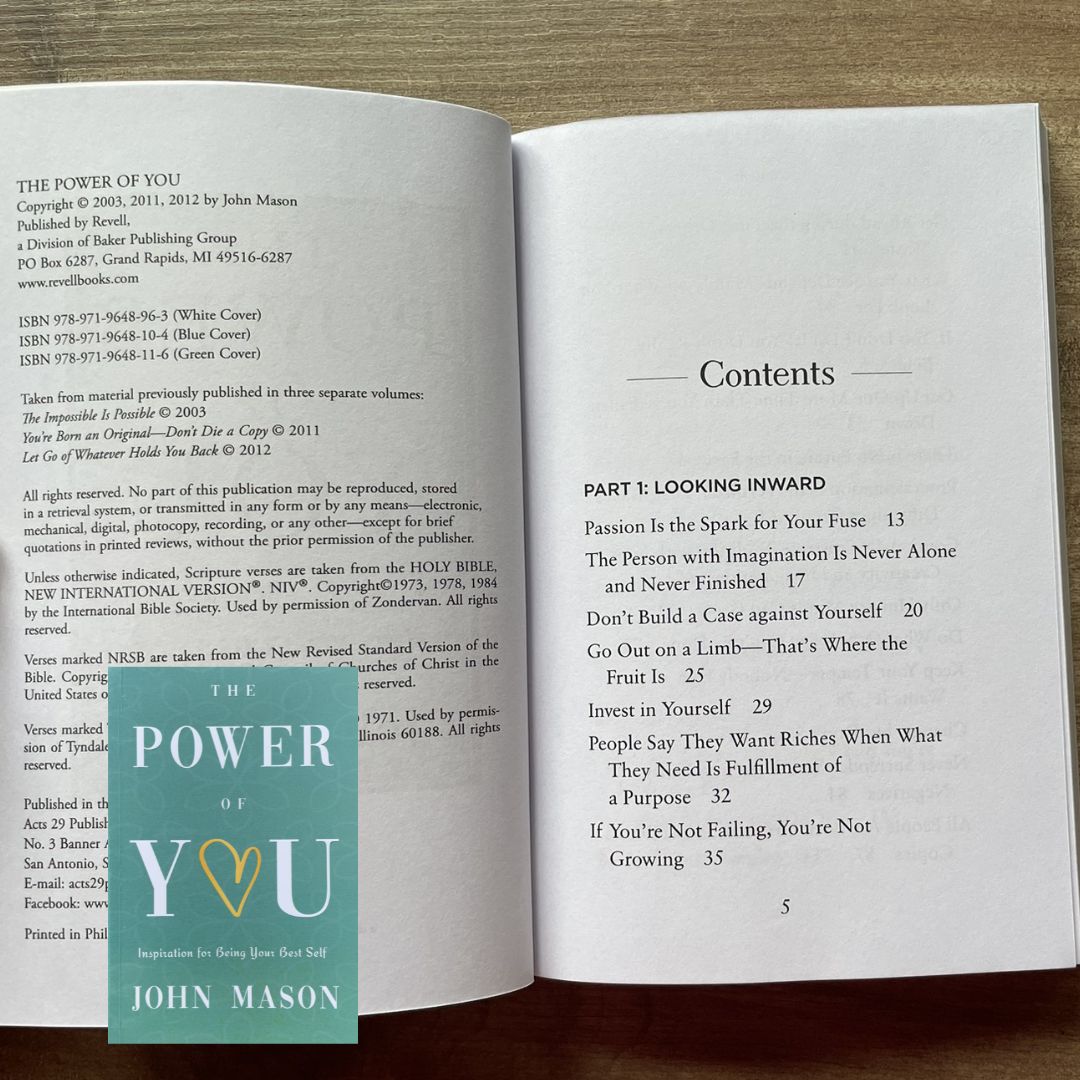 THE POWER OF YOU
Copyright © 2003, 2011, 2012 by John Mason
Published by Revell,
a Division of Baker Publishing Group
PO Box 6287, Grand Rapids, MI 49516-6287
www.revellbooks.com
ISBN 978-971-9648-96-3 (White Cover)
ISBN 978-971-9648-10-4 (Blue Cover)
ISBN 978-971-9648-11-6 (Green Cover)
Taken from material previously published in three separate volumes:
The Impossible Is Possible © 2003
You're Born an Original—Don't Die a Copy © 2011
Let Go of Whatever Holds You Back © 2012
All rights reserved. No part of this publication may be reproduced, stored
in a retrieval system, or transmitted in any form or by any means—electronic,
mechanical, digital, photocopy, recording, or any other—except for brief
quotations in printed reviews, without the prior permission of the publisher.
Unless otherwise indicated, Scripture verses are taken from the HOLY BIBLE,
NEW INTERNATIONAL VERSION®. NIV®. Copyright©1973, 1978, 1984
by the International Bible Society. Used by permission of Zondervan. All rights
reserved.
Verses marked NRSB are taken from the New Revised Standard Version of the
Bible. Churches of Christ in the
United States reserved.
Verses marked 1971. Used by permis-
sion of 60188. All rights
reserved.
Published in
Acts 29
No. 3 Banner
San Antonio,
E-mail:
Facebook:
Printed in
THE
POWER
OF
YOU
Inspiration for Being Your Best Self
JOHN MASON
Contents
PART 1: LOOKING INWARD
Passion Is the Spark for Your Fuse 13
The Person with Imagination Is Never Alone
and Never Finished 17
Don't Build a Case against Yourself 20
Go Out on a Limb—That's Where the
Fruit Is 25
Invest in Yourself 29
People Say They Want Riches When What
They Need Is Fulfillment of
a Purpose 32
If You're Not Failing, You're Not
Growing 35
5